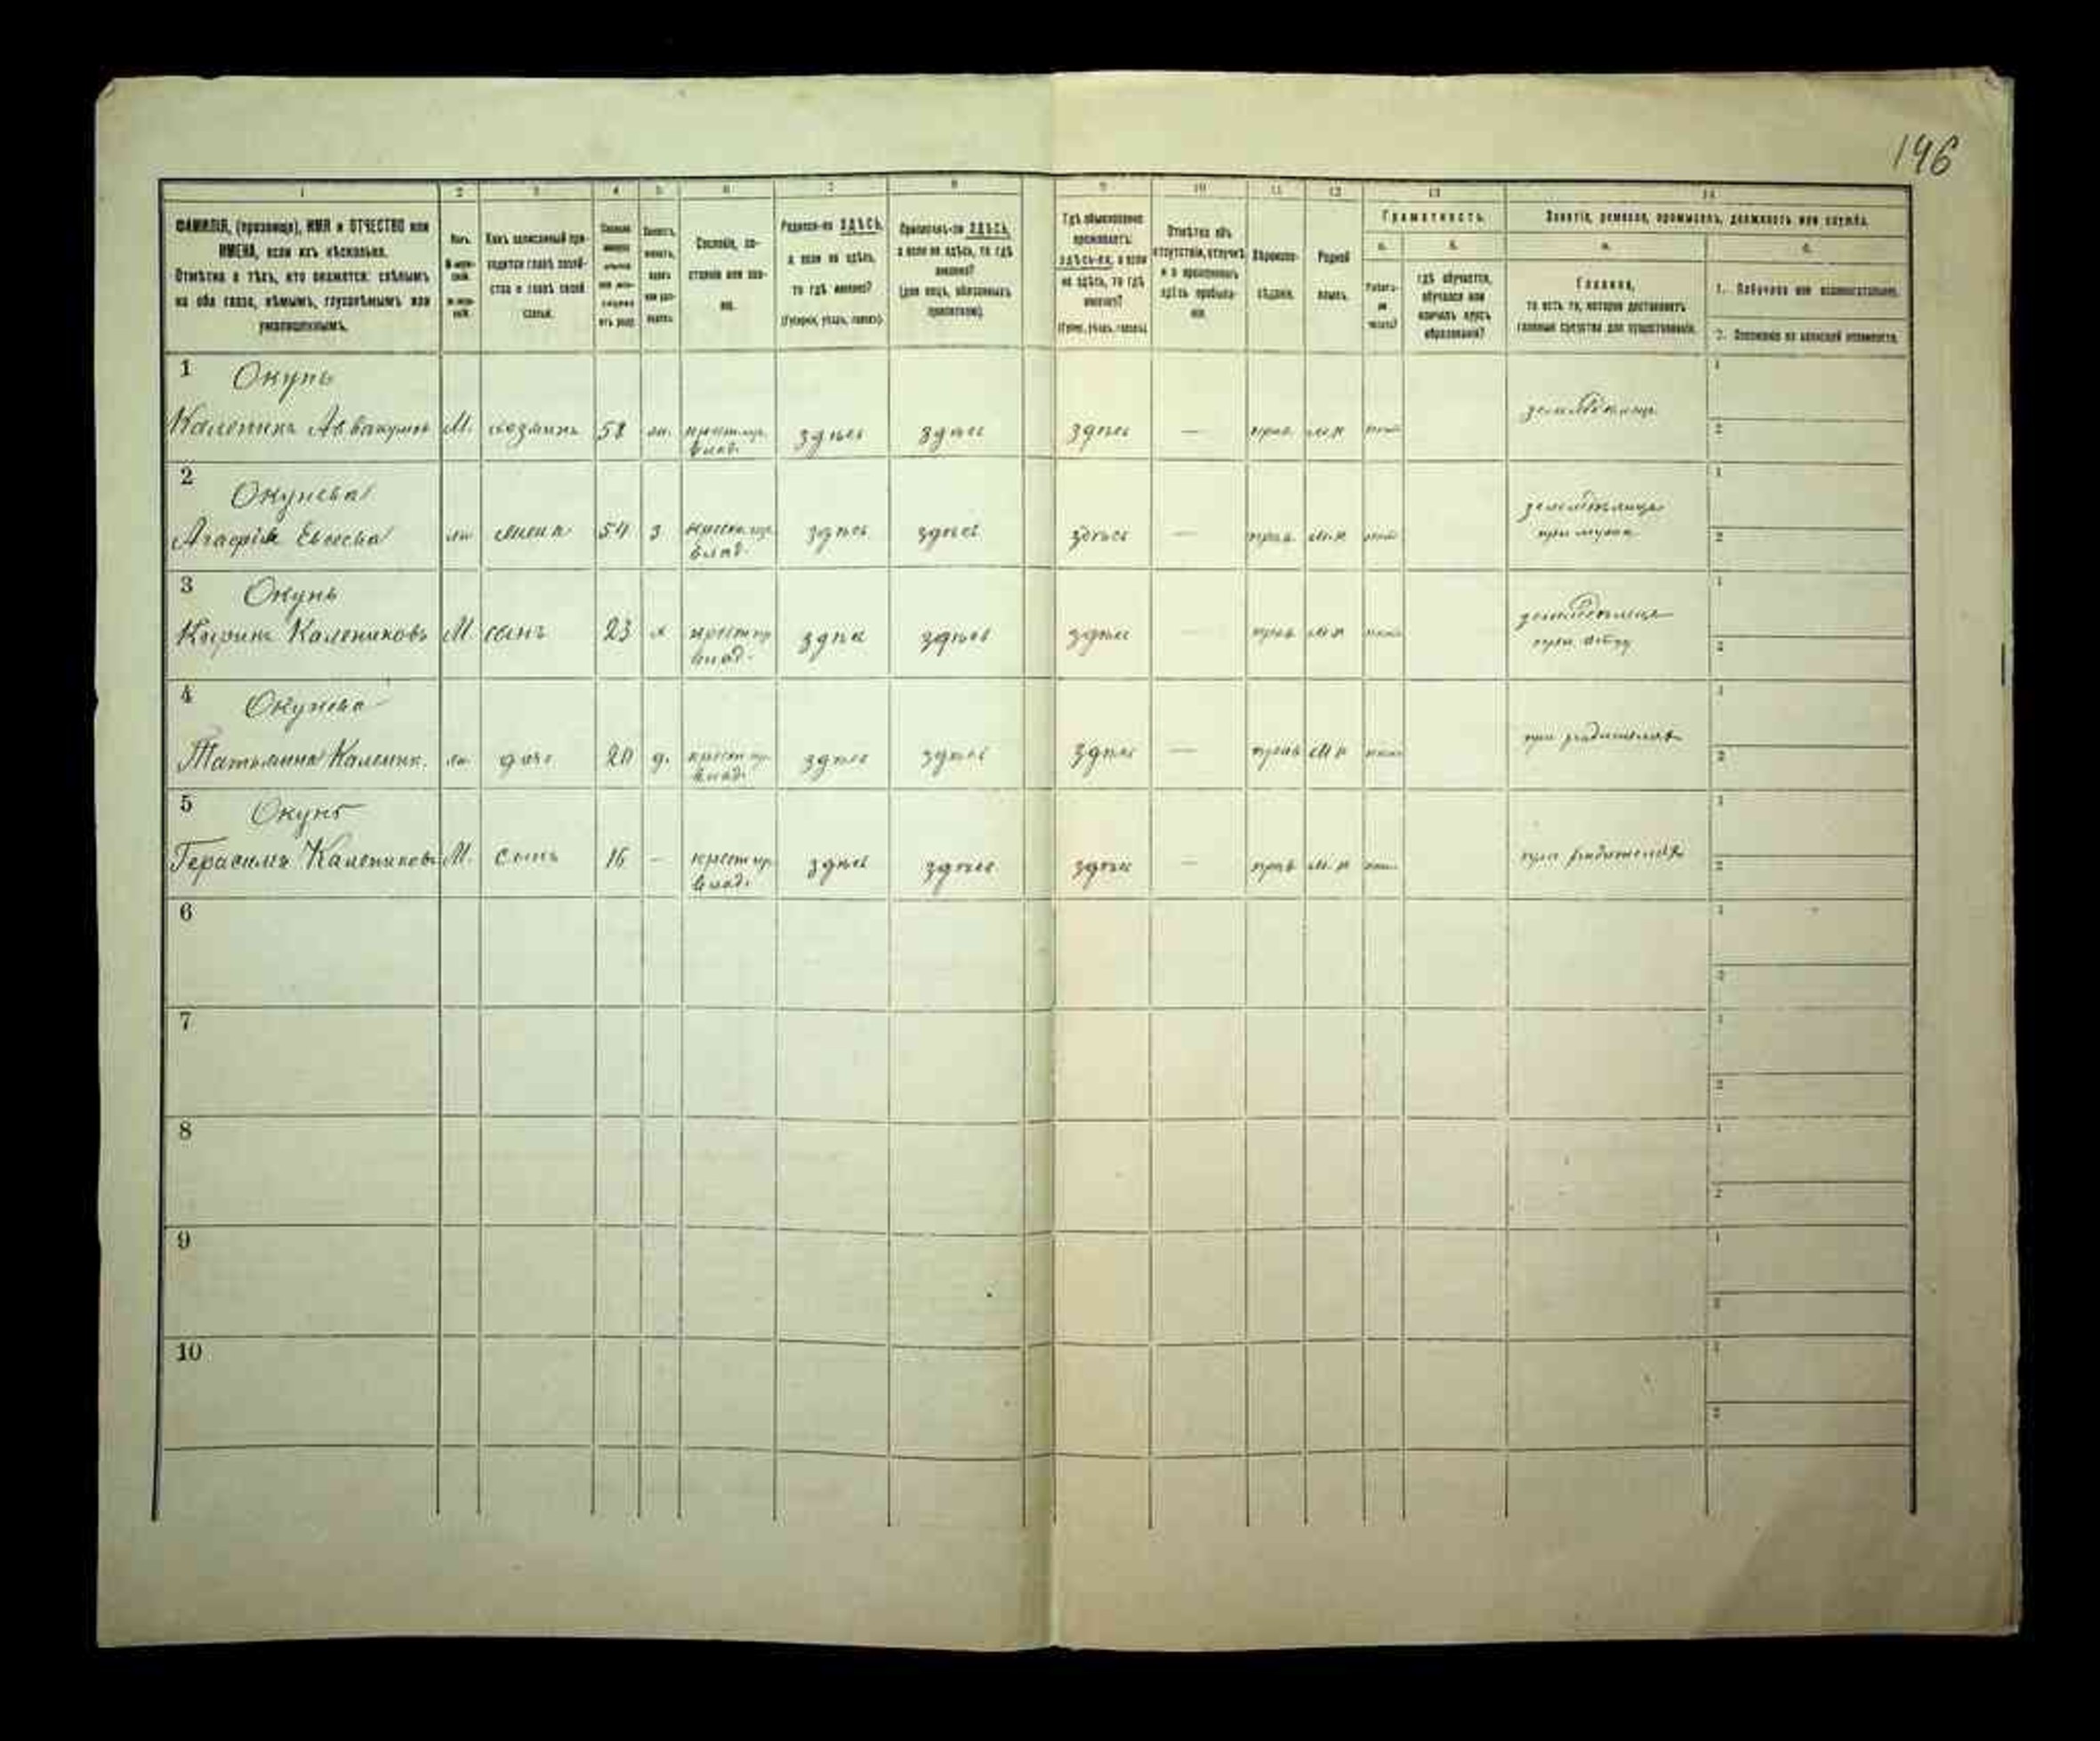 146
1 2 3 4 5 6 7 8 9 10 11 12 13 14
ФАМИЛІЯ, (прозвище), ИМЯ и ОТЧЕСТВО или
ИМЕНА, если ихъ нѣсколько.
Отмѣтка о тѣхъ, кто окажется: слѣпымъ
на оба глаза, нѣмымъ, глухонѣмымъ или
умалишеннымъ.
Какъ записанный при-
ходится главѣ хозяй-
ства и главѣ своей
семьи.
Сословіе, со-
стояніе или зва-
ніе.
Родился-ли ЗДѢСЬ,
а если не здѣсь,
то гдѣ именно?
(Губернія, уѣздъ, городъ).
Приписанъ-ли ЗДѢСЬ,
а если не здѣсь, то гдѣ
именно?
(для лицъ, обязанныхъ
припискою).
Гдѣ обыкновенно
проживаетъ:
здѣсь-ли, а если
не здѣсь, то гдѣ
именно?
(Губер., уѣздъ, городъ).
Отмѣтка объ
отсутствіи, отлучкѣ
и о временномъ
здѣсь пребыва-
ніи.
Вѣроиспо-
вѣданіе.
Родной
языкъ.
Грамотность.
а. б.
гдѣ обучается,
обучался или
кончилъ курсъ
образованія?
Занятіе, ремесло, промыселъ, должность или служба.
а. б.
Главное,
то есть то, которое доставляетъ
главныя средства для существованія.
1. Побочное или вспомогательное.
2. Положеніе по воинской повинности.
1 Окунь
Каленикъ Аввакумов М. хозяинъ 58 жн. крест. пр. влад. здѣсь здѣсь здѣсь — прав. м.р. земледѣлецъ 1 2
2 Окунева
Агафія Евсеева жена 54 з крест. пр. влад. здѣсь здѣсь здѣсь — прав. м.р. при мужѣ 1 2
3 Окунь
Калениковъ М сынъ 23 х крест. пр. влад. здѣсь здѣсь здѣсь — прав м.р при отцу 1 2
4 Окунева
Татьяна Каленик. дочь 20 д. крест. пр. влад. здѣсь здѣсь здѣсь — прав м р при родителяхъ 1 2
5 Окунь
Герасимъ Калениковъ М. сынъ 16 — крест пр. влад. здѣсь здѣсь здѣсь — прав м. р при родителяхъ 1 2
6 1 2
7 1 2
8 1 2
9 1 2
10 1 2